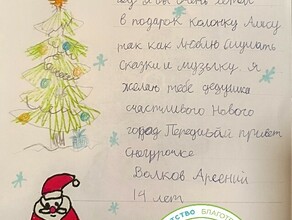 году я бы очень хотел
в подарок колонку Алису
так как люблю слушать
сказки и музыку. Я
желаю тебе дедушка
счастливого Нового
город Передавай привет
Снегурочке
Волков Арсений
14 лет